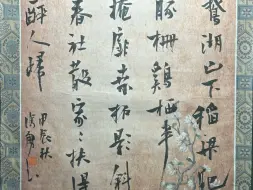 鵝湖山下稻粱肥
豚柵鷄栖半
掩扉桑柘影斜
春社散家家扶得
醉人歸
甲辰秋